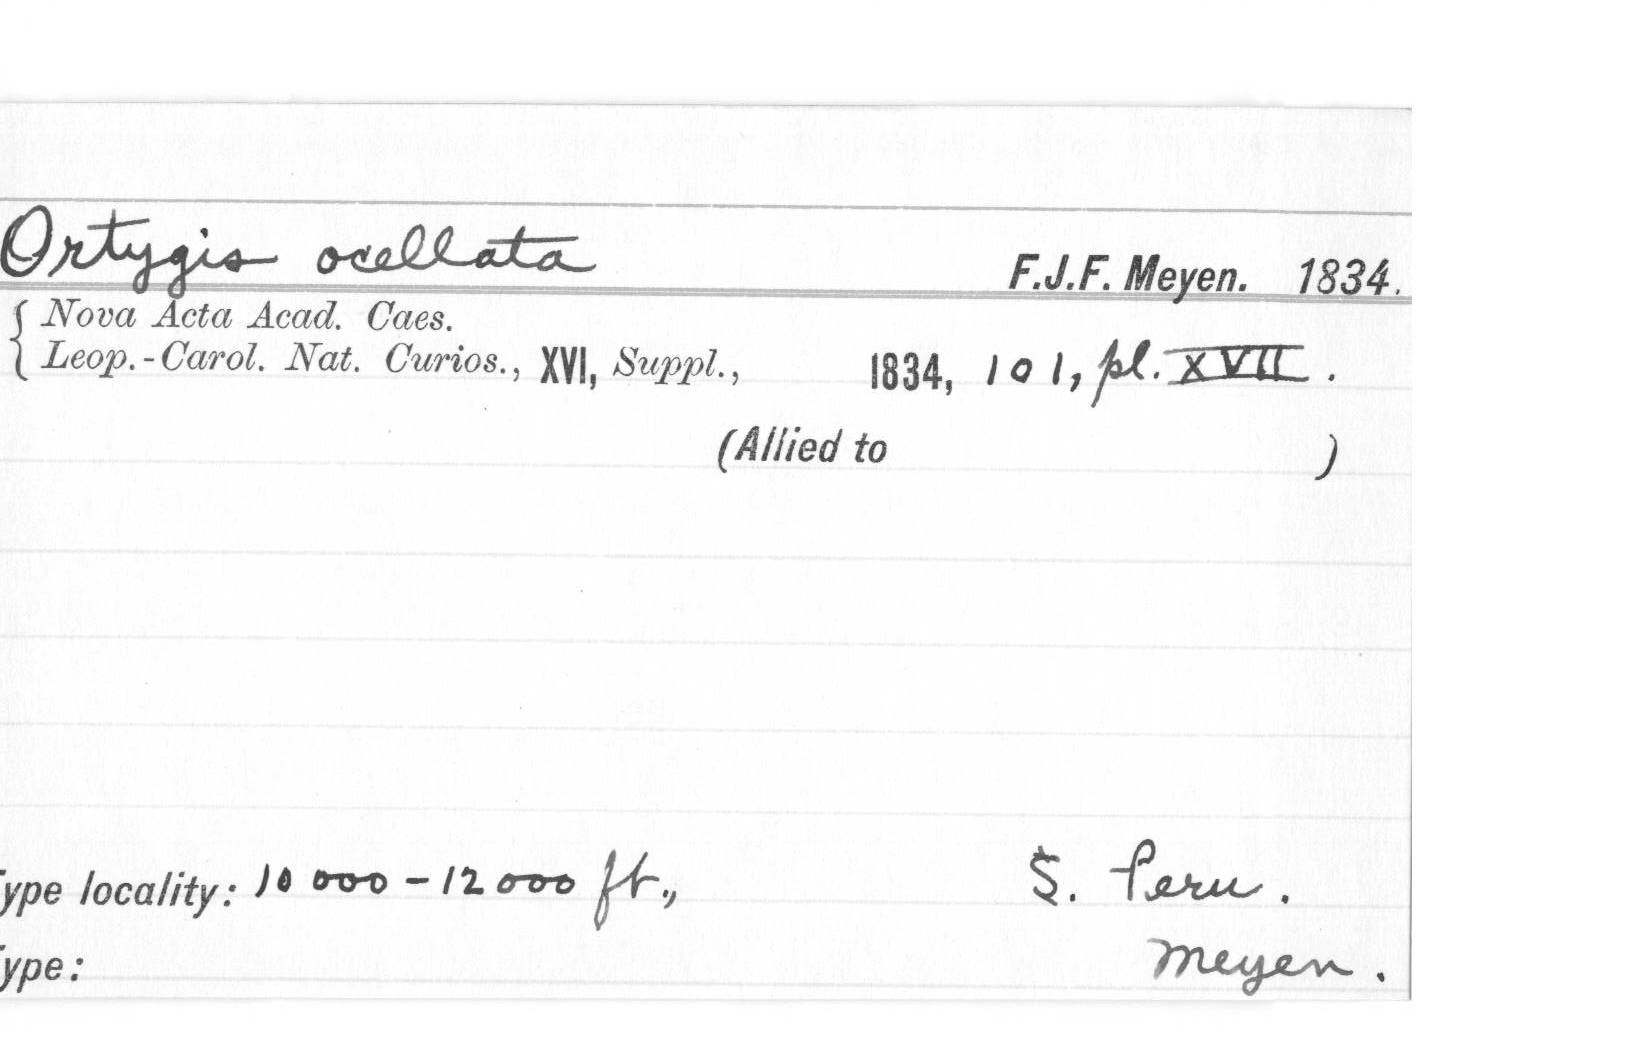 Ortygis ocellata F.J.F. Meyen. 1834.
Nova Acta Acad. Caes.
Leop.-Carol. Nat. Curios., XVI, Suppl., 1834, 101, pl. XVII.
(Allied to )
Type locality: 10 000 - 12 000 ft., S. Peru.
Type: Meyen.